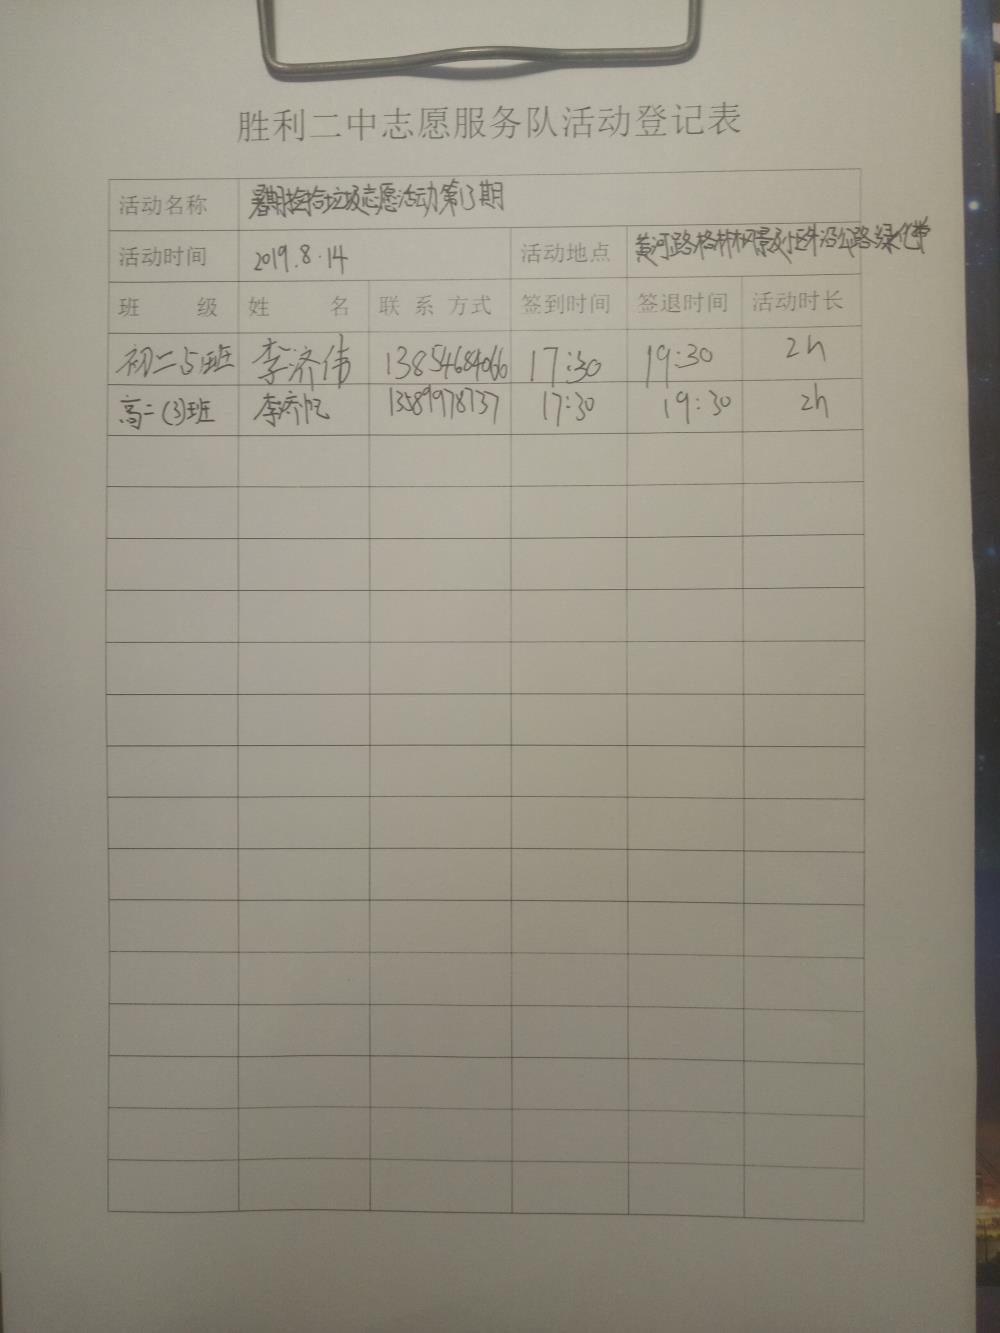 胜利二中志愿服务队活动登记表
活动名称 暑期捡拾垃圾志愿活动第13期
活动时间 2019.8.14 活动地点 黄河路格林风景及小区外沿公路绿化带
班 级 姓 名 联 系 方式 签到时间 签退时间 活动时长
初二5班 李济伟 13854684066 17:30 19:30 2h
高二(3)班 李济帆 13589978737 17:30 19:30 2h